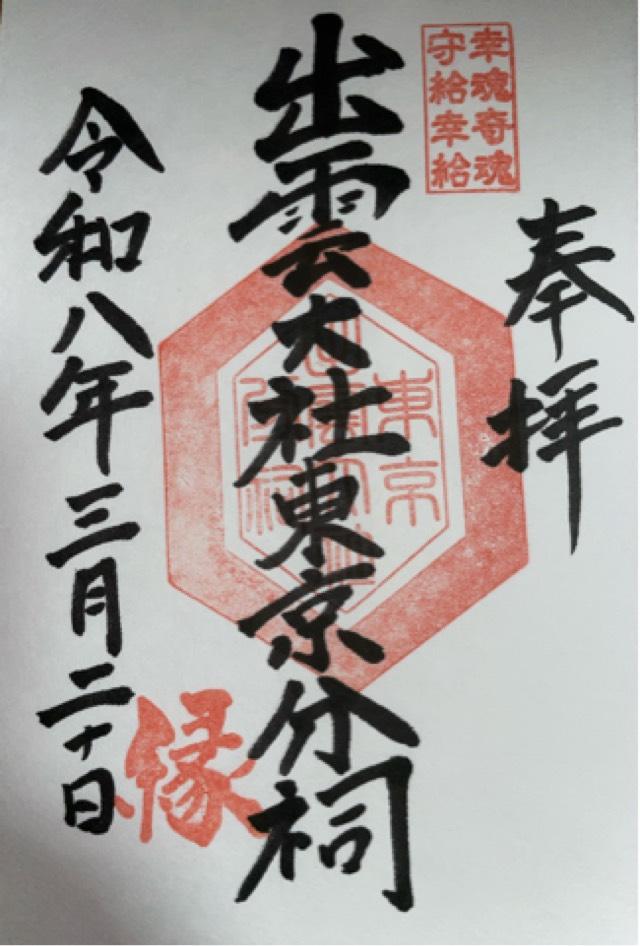 幸魂奇魂
守給幸給
奉拝
出雲大社東京分祠
東京
出雲大社
分祠
縁
令和八年三月二十日